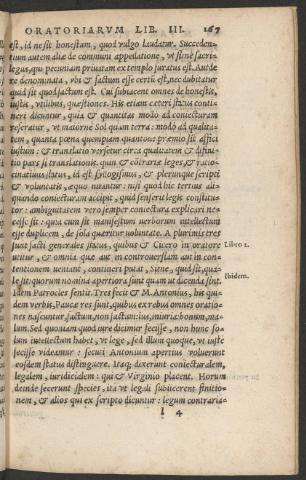 ORATORIARVM LIB. III. 167
est, id ne sit honestum, quod vulgo laudatur. Succeden-
tium autem aliæ de communi appellatione, vt sit ne sacri-
legus, qui pecuniam priuatam ex templo furatus est. Aut de
re denominata, vbi & factum esse certū est, nec dubitatur
quid sit quod factum est. Cui subiacent omnes de honestis,
iustis, vtilibus, quæstiones. His etiam cæteri status conti-
neri dicuntur, quia & quantitas modò ad coniecturam
referatur, vt maiórne Sol quam terra: modò ad qualita-
tem, quanta pœna quempiam quantóue præmio sit affici
iustum: & translatio versetur circa qualitatem & difini-
tio pars sit translationis. quin & cōtrariæ leges, & ratio-
cinatiuus status, id est syllogismus, & plerunque scripti
& voluntatis, æquo nitantur: nisi quod hic tertius ali-
quando coniecturam accipit, quid senserit legis constitu-
tor: ambiguitatem vero semper coniectura explicari ne-
cesse sit: quia cùm sit manifestum verborum intellectum
esse duplicem, de sola quæritur voluntate. A plurimis tres
sunt facti generales status, quibus & Cicero in oratore
vtitur, & omnia quæ aut in controuersiam aut in con-
tentionem veniant, contineri putat, Sitne, quid sit, qua-
le sit: quorum nomina apertiora sunt quam vt dicenda sint.
Idem Patrocles sentit. Tres fecit & M. Antonius, his qui-
dem verbis, Paucæ res sunt, quibus ex rebus omnes oratio-
nes nascuntur, factum, non factum: ius, iniuria: bonum, ma-
lum. Sed quoniam quod iure dicimur fecisse, non hunc so-
lum intellectum habet, vt lege, sed illum quoque, vt iustè
fecisse videamur: secuti Antonium apertius voluerunt
eosdem status distinguere. Itaq; dixerunt coniecturalem,
legalem, iuridicialem: qui & Virginio placent. Horum
deinde fecerunt species, ita vt legali subiicerent finitio-
nem, & alios qui ex scripto dicuntur: legum contraria-
l 4
Libro 2.
Ibidem.